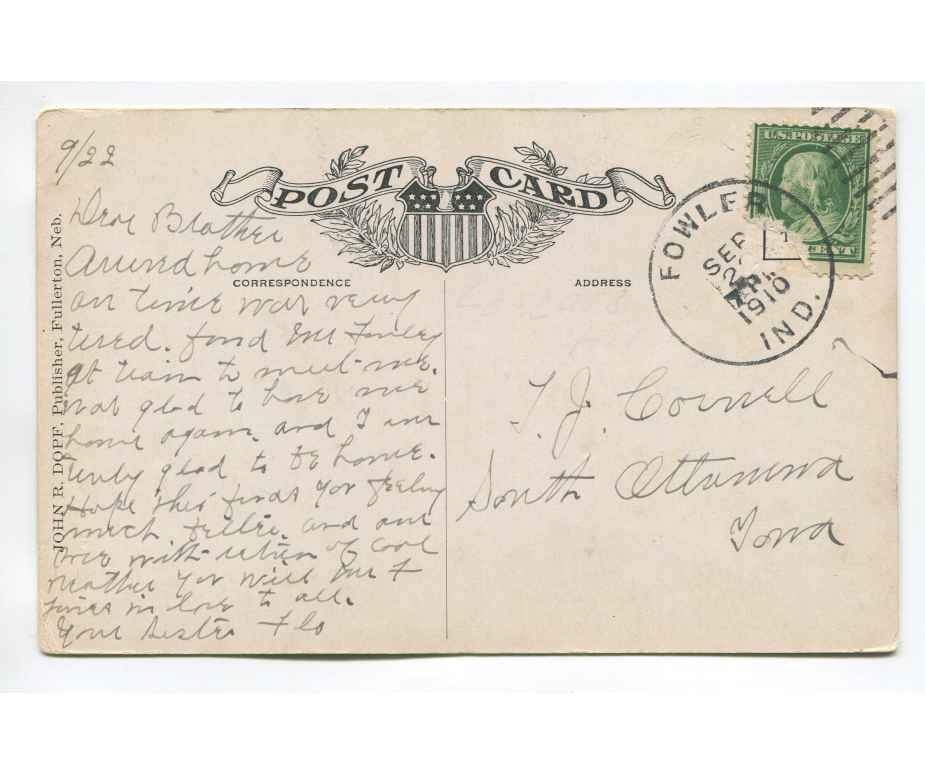 9/22
POST CARD
U.S. POSTAGE
CENT
FOWLER
SEP
2
1910
IND.
CORRESPONDENCE
ADDRESS
JOHN R. DOPF, Publisher, Fullerton, Neb.
Dear Brother
Arived home
on time was very
tired. fond Mr
at train to meet me.
was glad to have me
home again. and I am
truly glad to be home.
Hope this finds you feeling
much better and am
with return of cool
weather you will
in love to all.
Your Sister Flo
T. J. Cornell
South Ottumwa
Iowa